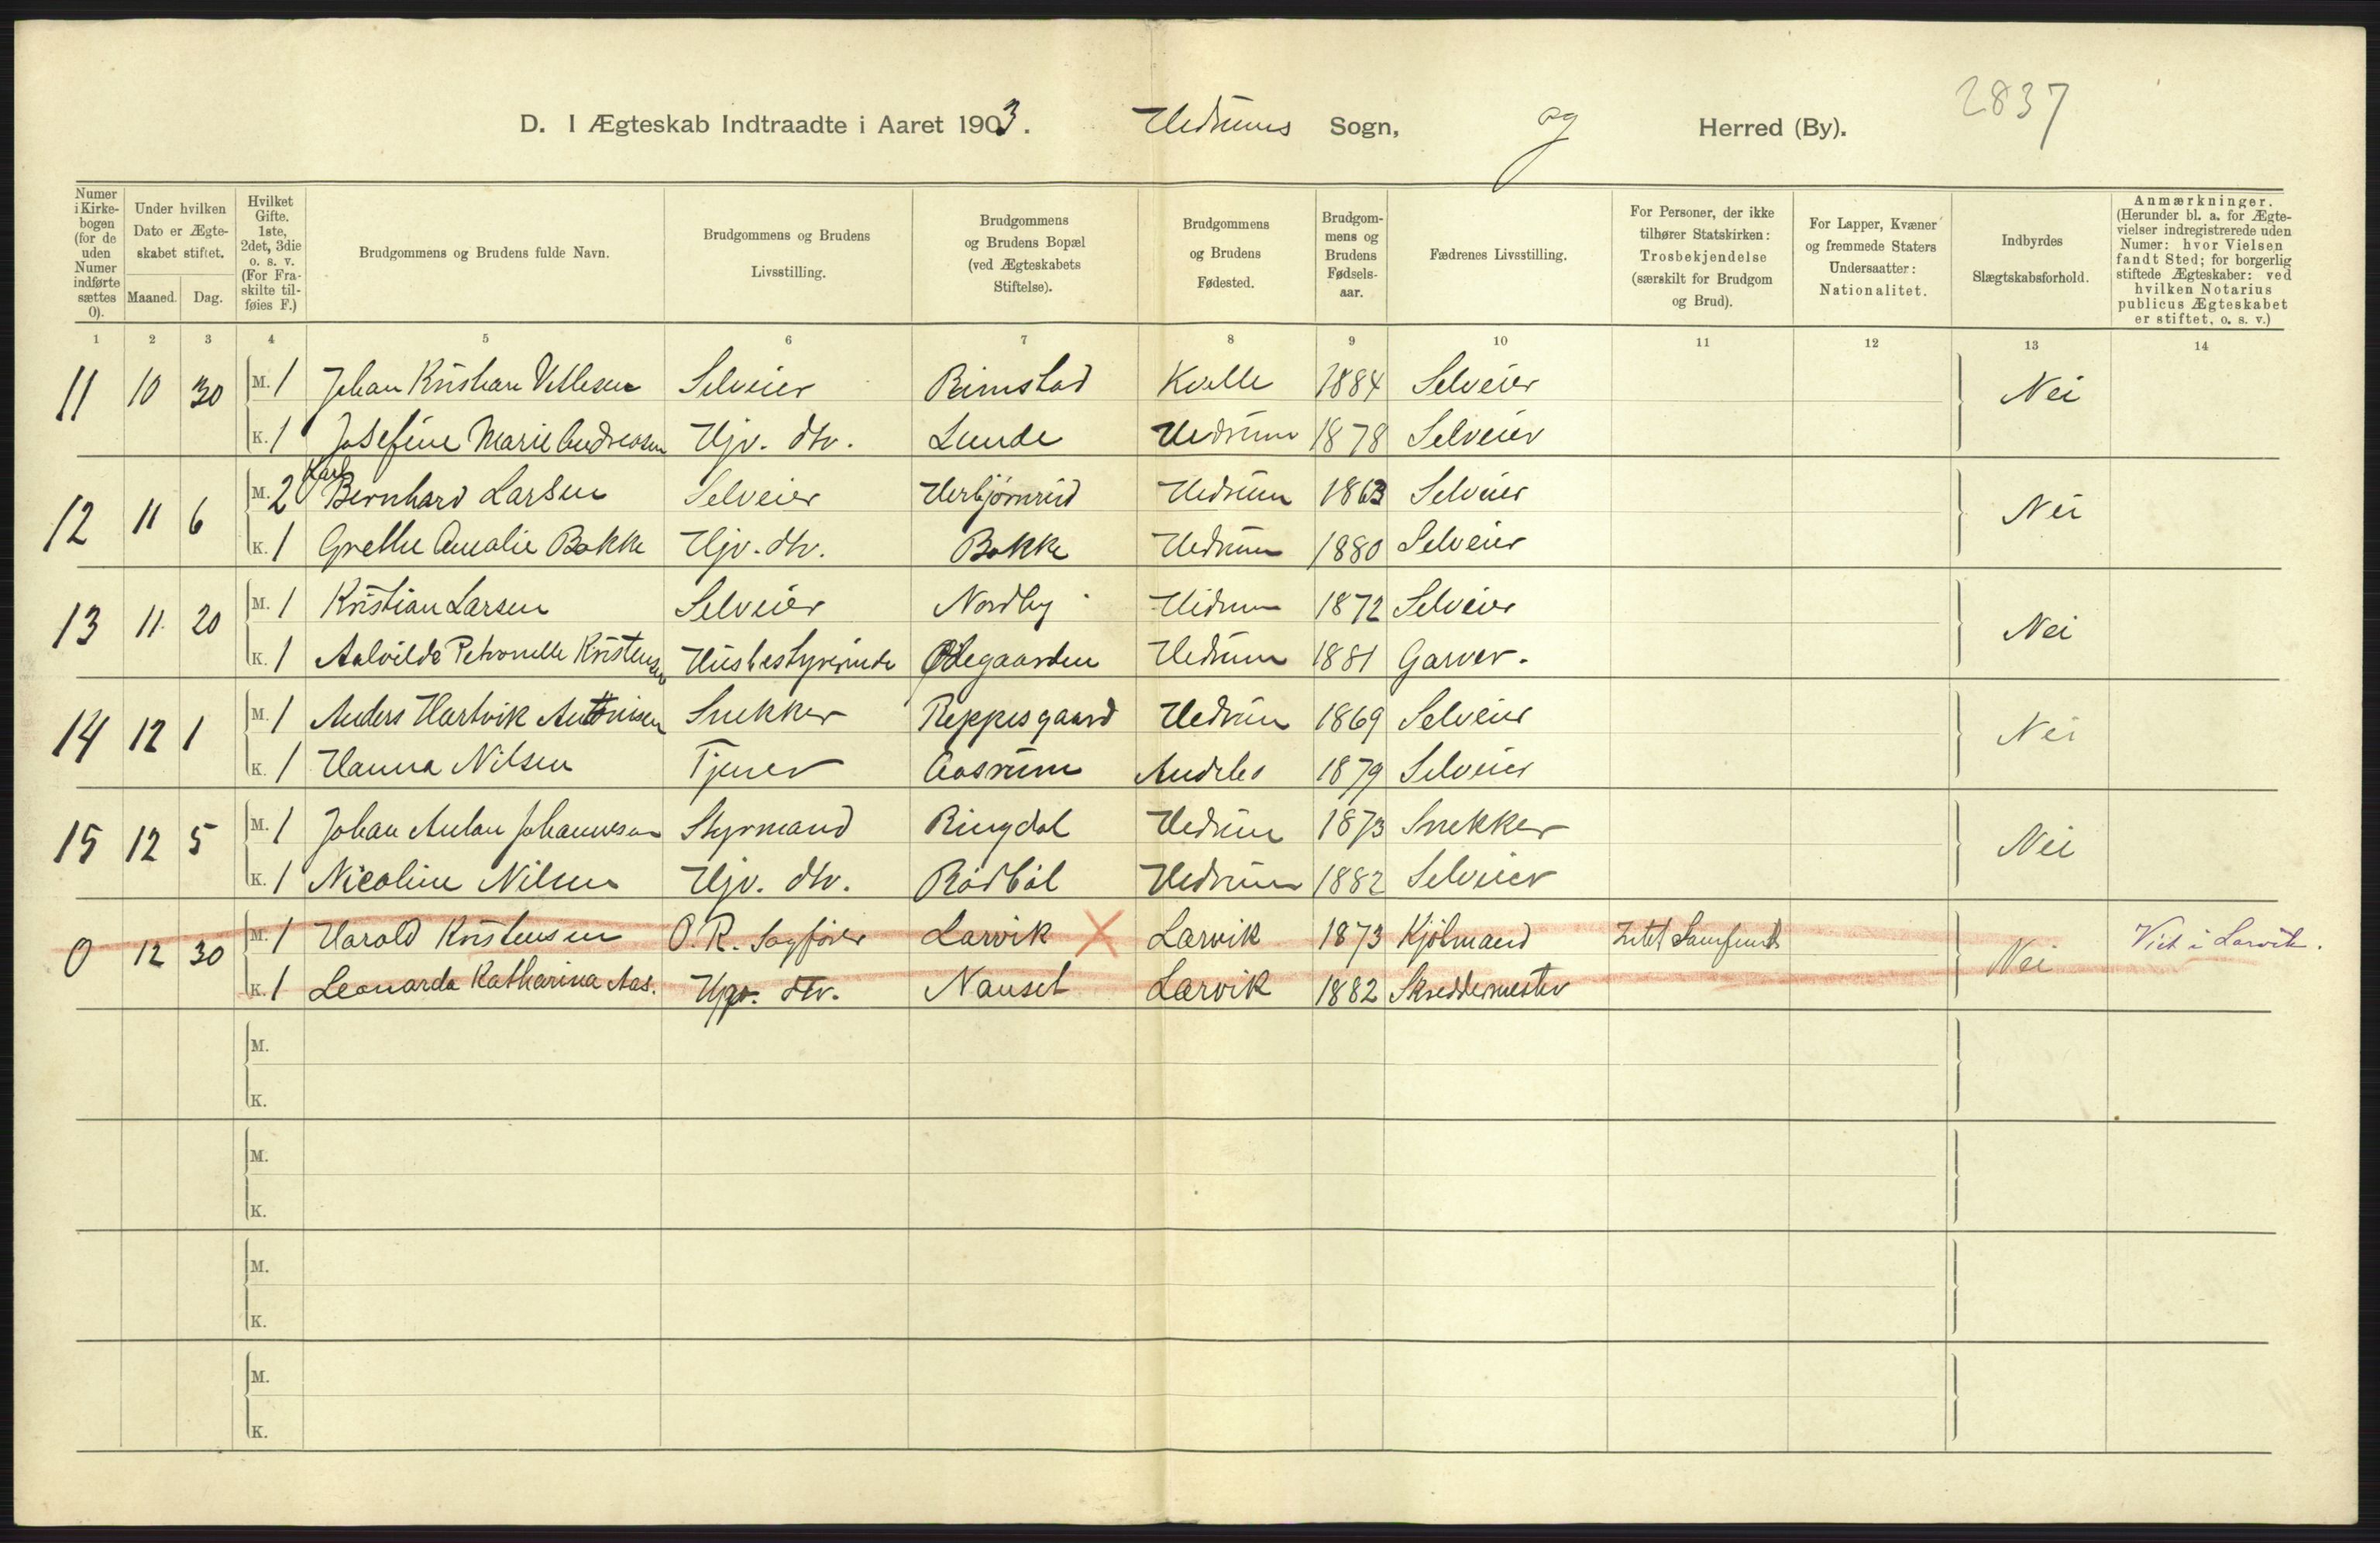 2837
D. I Ægteskab Indtraadte i Aaret 1903. Hedrums Sogn, og Herred (By).
Numer i Kirke-bogen (for de uden Numer indførte sættes 0).
Under hvilken Dato er Ægte-skabet stiftet.
Maaned. Dag.
Hvilket Gifte. 1ste, 2det, 3die o. s. v. (For Fra-skilte til-føies F.)
Brudgommens og Brudens fulde Navn.
Brudgommens og Brudens Livsstilling.
Brudgommens og Brudens Bopæl (ved Ægteskabets Stiftelse).
Brudgommens og Brudens Fødested.
Brudgom-mens og Brudens Fødsels-aar.
Fædrenes Livsstilling.
For Personer, der ikke tilhører Statskirken: Trosbekjendelse (særskilt for Brudgom og Brud).
For Lapper, Kvæner og fremmede Staters Undersaatter: Nationalitet.
Indbyrdes Slægtskabsforhold.
Anmærkninger. (Herunder bl. a. for Ægte-vielser indregistrerede uden Numer: hvor Vielsen fandt Sted; for borgerlig stiftede Ægteskaber: ved hvilken Notarius publicus Ægteskabet er stiftet, o. s. v.)
1 2 3 4 5 6 7 8 9 10 11 12 13 14
11 10 30 M. 1 Johan Kristian Vetlesen Selveier Rimstad Kvelle 1884 Selveier Nei
K. 1 Josefine Marie Andreasen Hjv. dtr. Lunde Hedrum 1878 Selveier
12 11 6 M. 2 Karl Bernhard Larsen Selveier Herbjørnrud Hedrum 1863 Selveier Nei
K. 1 Grethe Amalie Bakke Hjv. dtr. Bakke Hedrum 1880 Selveier
13 11 20 M. 1 Kristian Larsen Selveier Nordby Hedrum 1872 Selveier Nei
K. 1 Aalvilde Petronelle Kristensen Husbestyrerinde Ødegaarden Hedrum 1881 Garver.
14 12 1 M. 1 Anders Hartvik Antonisen Snekker Reppesgaard Hedrum 1869 Selveier Nei
K. 1 Hanna Nilsen Tjener Aasrum Andebo 1879 Selveier
15 12 5 M. 1 Johan Anton Johannesen Styrmand Ringdal Hedrum 1873 Snekker Nei
K. 1 Nicoline Nilsen Hjv. dtr. Rödböl Hedrum 1882 Selveier
0 12 30 M. 1 Harold Kristensen O. R. Sagfører Larvik Larvik 1873 Kjölmand Intet Samfund Nei Viet i Larvik.
K. 1 Leonarda Katharina Aas. Hjv. dtr. Nanset Larvik 1882 Skreddermester
M.
K.
M.
K.
M.
K.
M.
K.